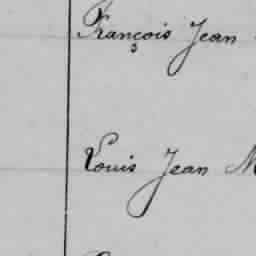 François Jean
Louis Jean M